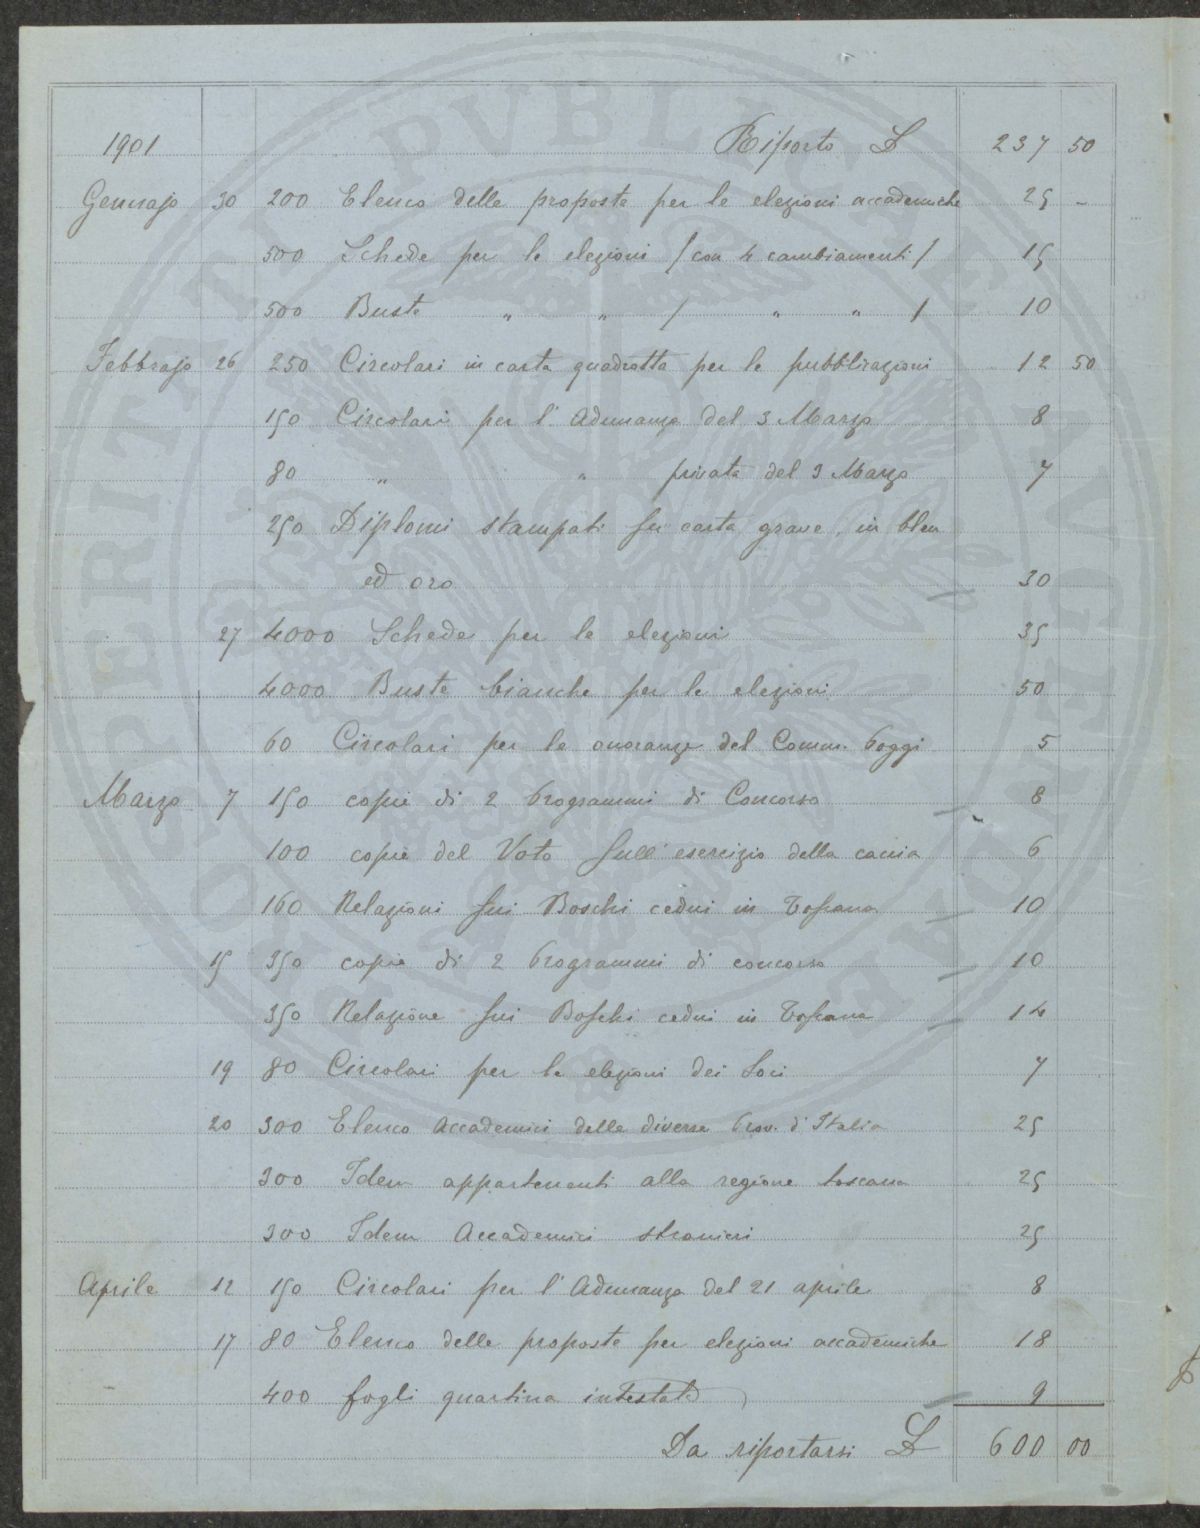 1901 Riporto L 237 50
Gennajo 30 200 Elenco delle proposte per le elezioni accademiche 25 -
500 Schede per le elezioni / con 4 cambiamenti / 15
500 Buste " " / " " / 10
Febbrajo 26 250 Circolari in carta quadrotta per le pubblicazioni 12 50
150 Circolari per l'Adunanza del 3 Marzo 8
80 " " privata del 3 Marzo 7
250 Diplomi stampati su carta grave, in bleu
ed oro 30
27 4000 Schede per le elezioni 35
4000 Buste bianche per le elezioni 50
60 Circolari per le onoranze del Comm. Poggi 5
Marzo 7 150 copie di 2 Programmi di Concorso 8
100 copie del Voto sull'esercizio della caccia 6
160 Relazioni sui Boschi cedui in Toscana 10
15 350 copie di 2 Programmi di concorso 10
350 Relazione sui Boschi cedui in Toscana 14
19 80 Circolari per le elezioni dei Soci 7
20 300 Elenco Accademici delle diverse Prov. d'Italia 25
300 Idem appartenenti alla regione toscana 25
300 Idem Accademici stranieri 25
Aprile 12 150 Circolari per l'Adunanza del 21 aprile 8
17 80 Elenco delle proposte per elezioni accademiche 18
400 fogli quartina intestata 9
Da riportarsi L 600 00
PROSPERITATI PVBLICAE AVGENDAE